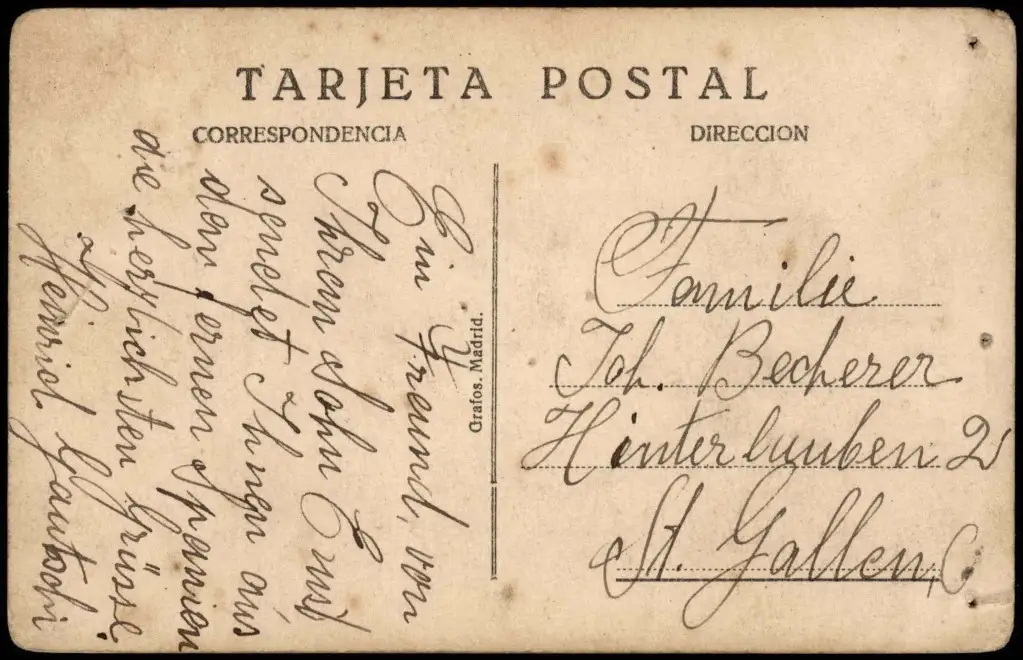 TARJETA POSTAL
CORRESPONDENCIA
DIRECCION
Ein Freund, von
Ihrem Sohn Ernst
sendet Ihnen aus
dem fernen Spanien
die herzlichsten Grüsse
Heinrich Gautschi
Grafos. Madrid.
Familie
Joh. Becherer
Hinterlauben 2
St. Gallen